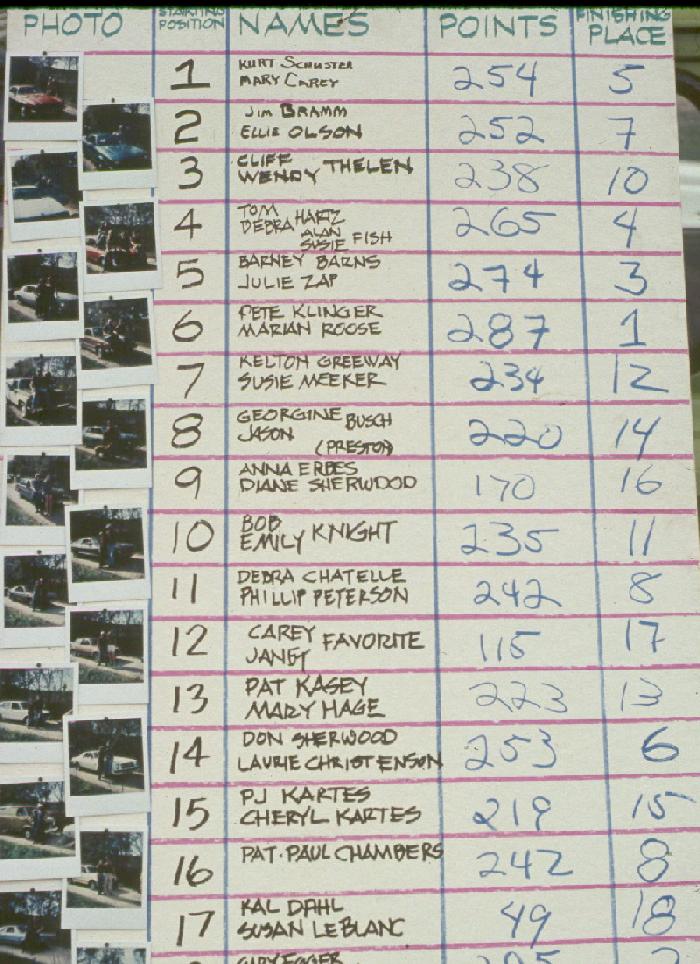 PHOTO STARTING POSITION NAMES POINTS FINISHING PLACE
1 KURT SCHUSTER MARY CAREY 254 5
2 JIM BRAMM ELLIE OLSON 252 7
3 CLIFF WENDY THELEN 238 10
4 TOM DEBRA HARTZ ALAN SUSIE FISH 265 4
5 BARNEY BARNS JULIE ZAP 274 3
6 PETE KLINGER MARIAN ROOSE 287 1
7 KELTON GREEWAY SUSIE MEEKER 234 12
8 GEORGINE JASON BUSCH (PRESTON) 220 14
9 ANNA ERBES DIANE SHERWOOD 170 16
10 BOB EMILY KNIGHT 235 11
11 DEBRA CHATELLE PHILLIP PETERSON 242 8
12 CAREY JANET FAVORITE 115 17
13 PAT KASEY MARY HAGE 223 13
14 DON SHERWOOD LAURIE CHRISTENSON 253 6
15 PJ KARTES CHERYL KARTES 219 15
16 PAT·PAUL CHAMBERS 242 8
17 KAL DAHL SUSAN LEBLANC 49 18